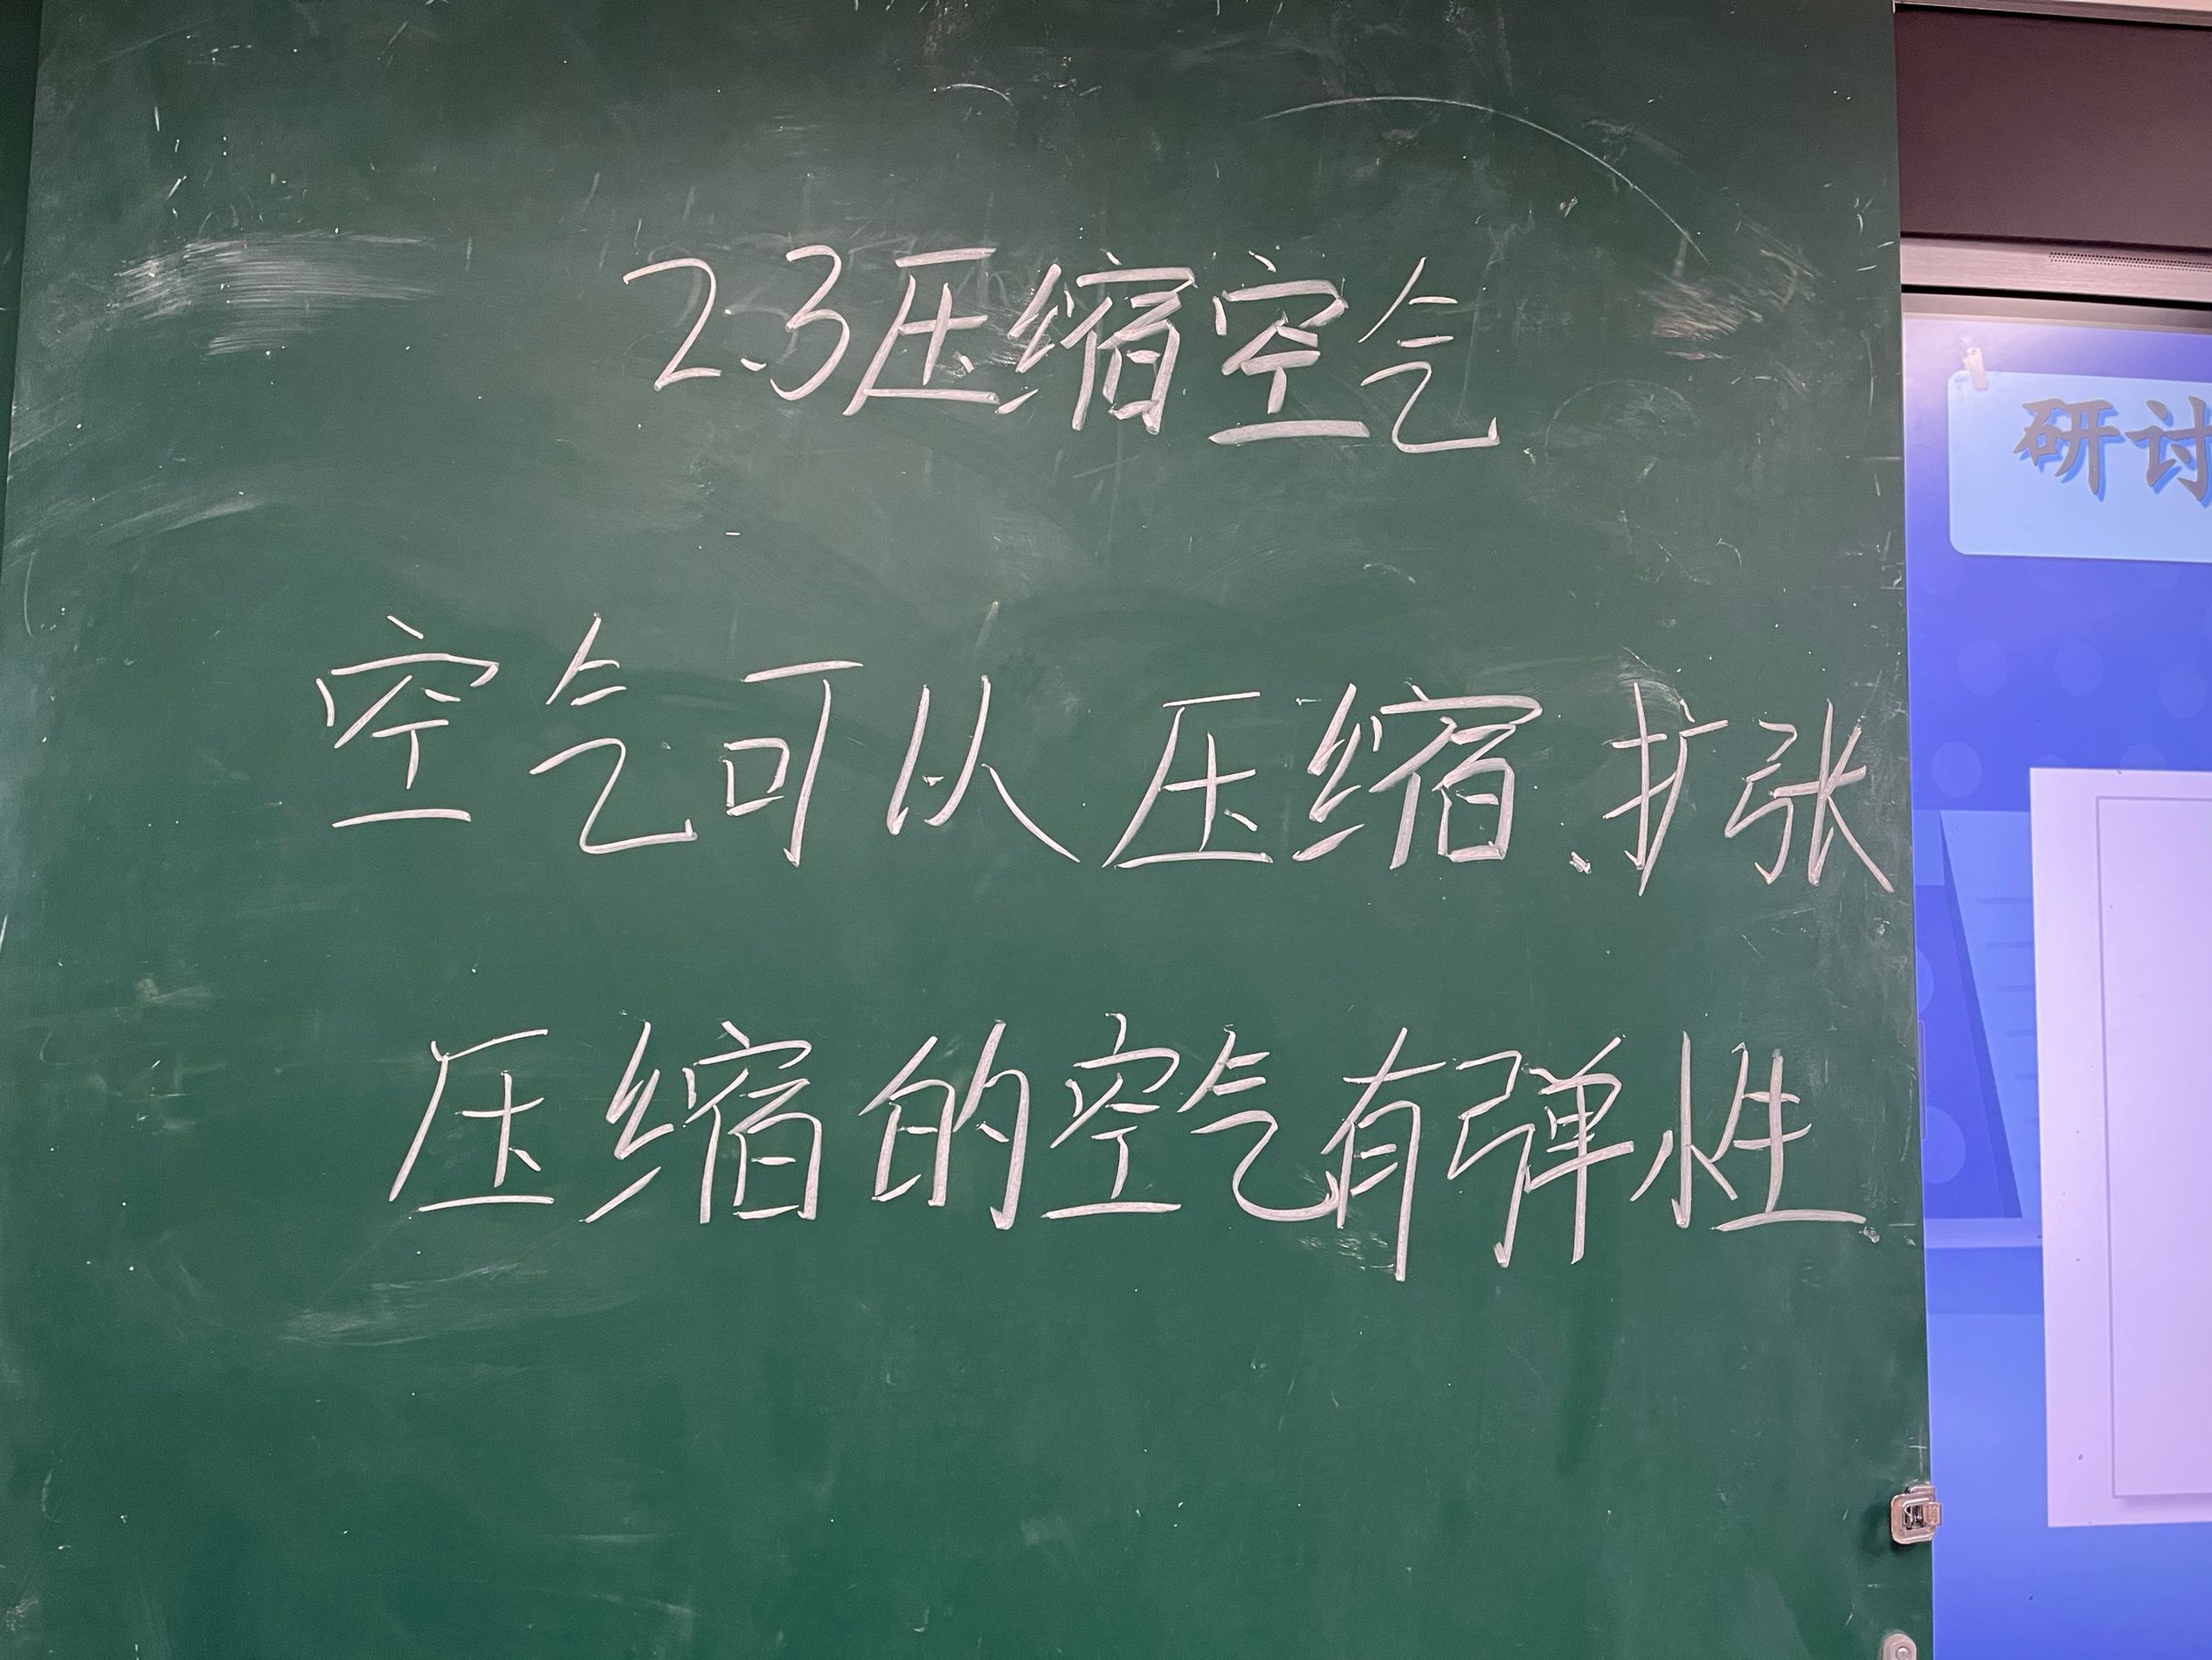 2.3压缩空气
研讨
空气可以压缩、扩张
压缩的空气有弹性